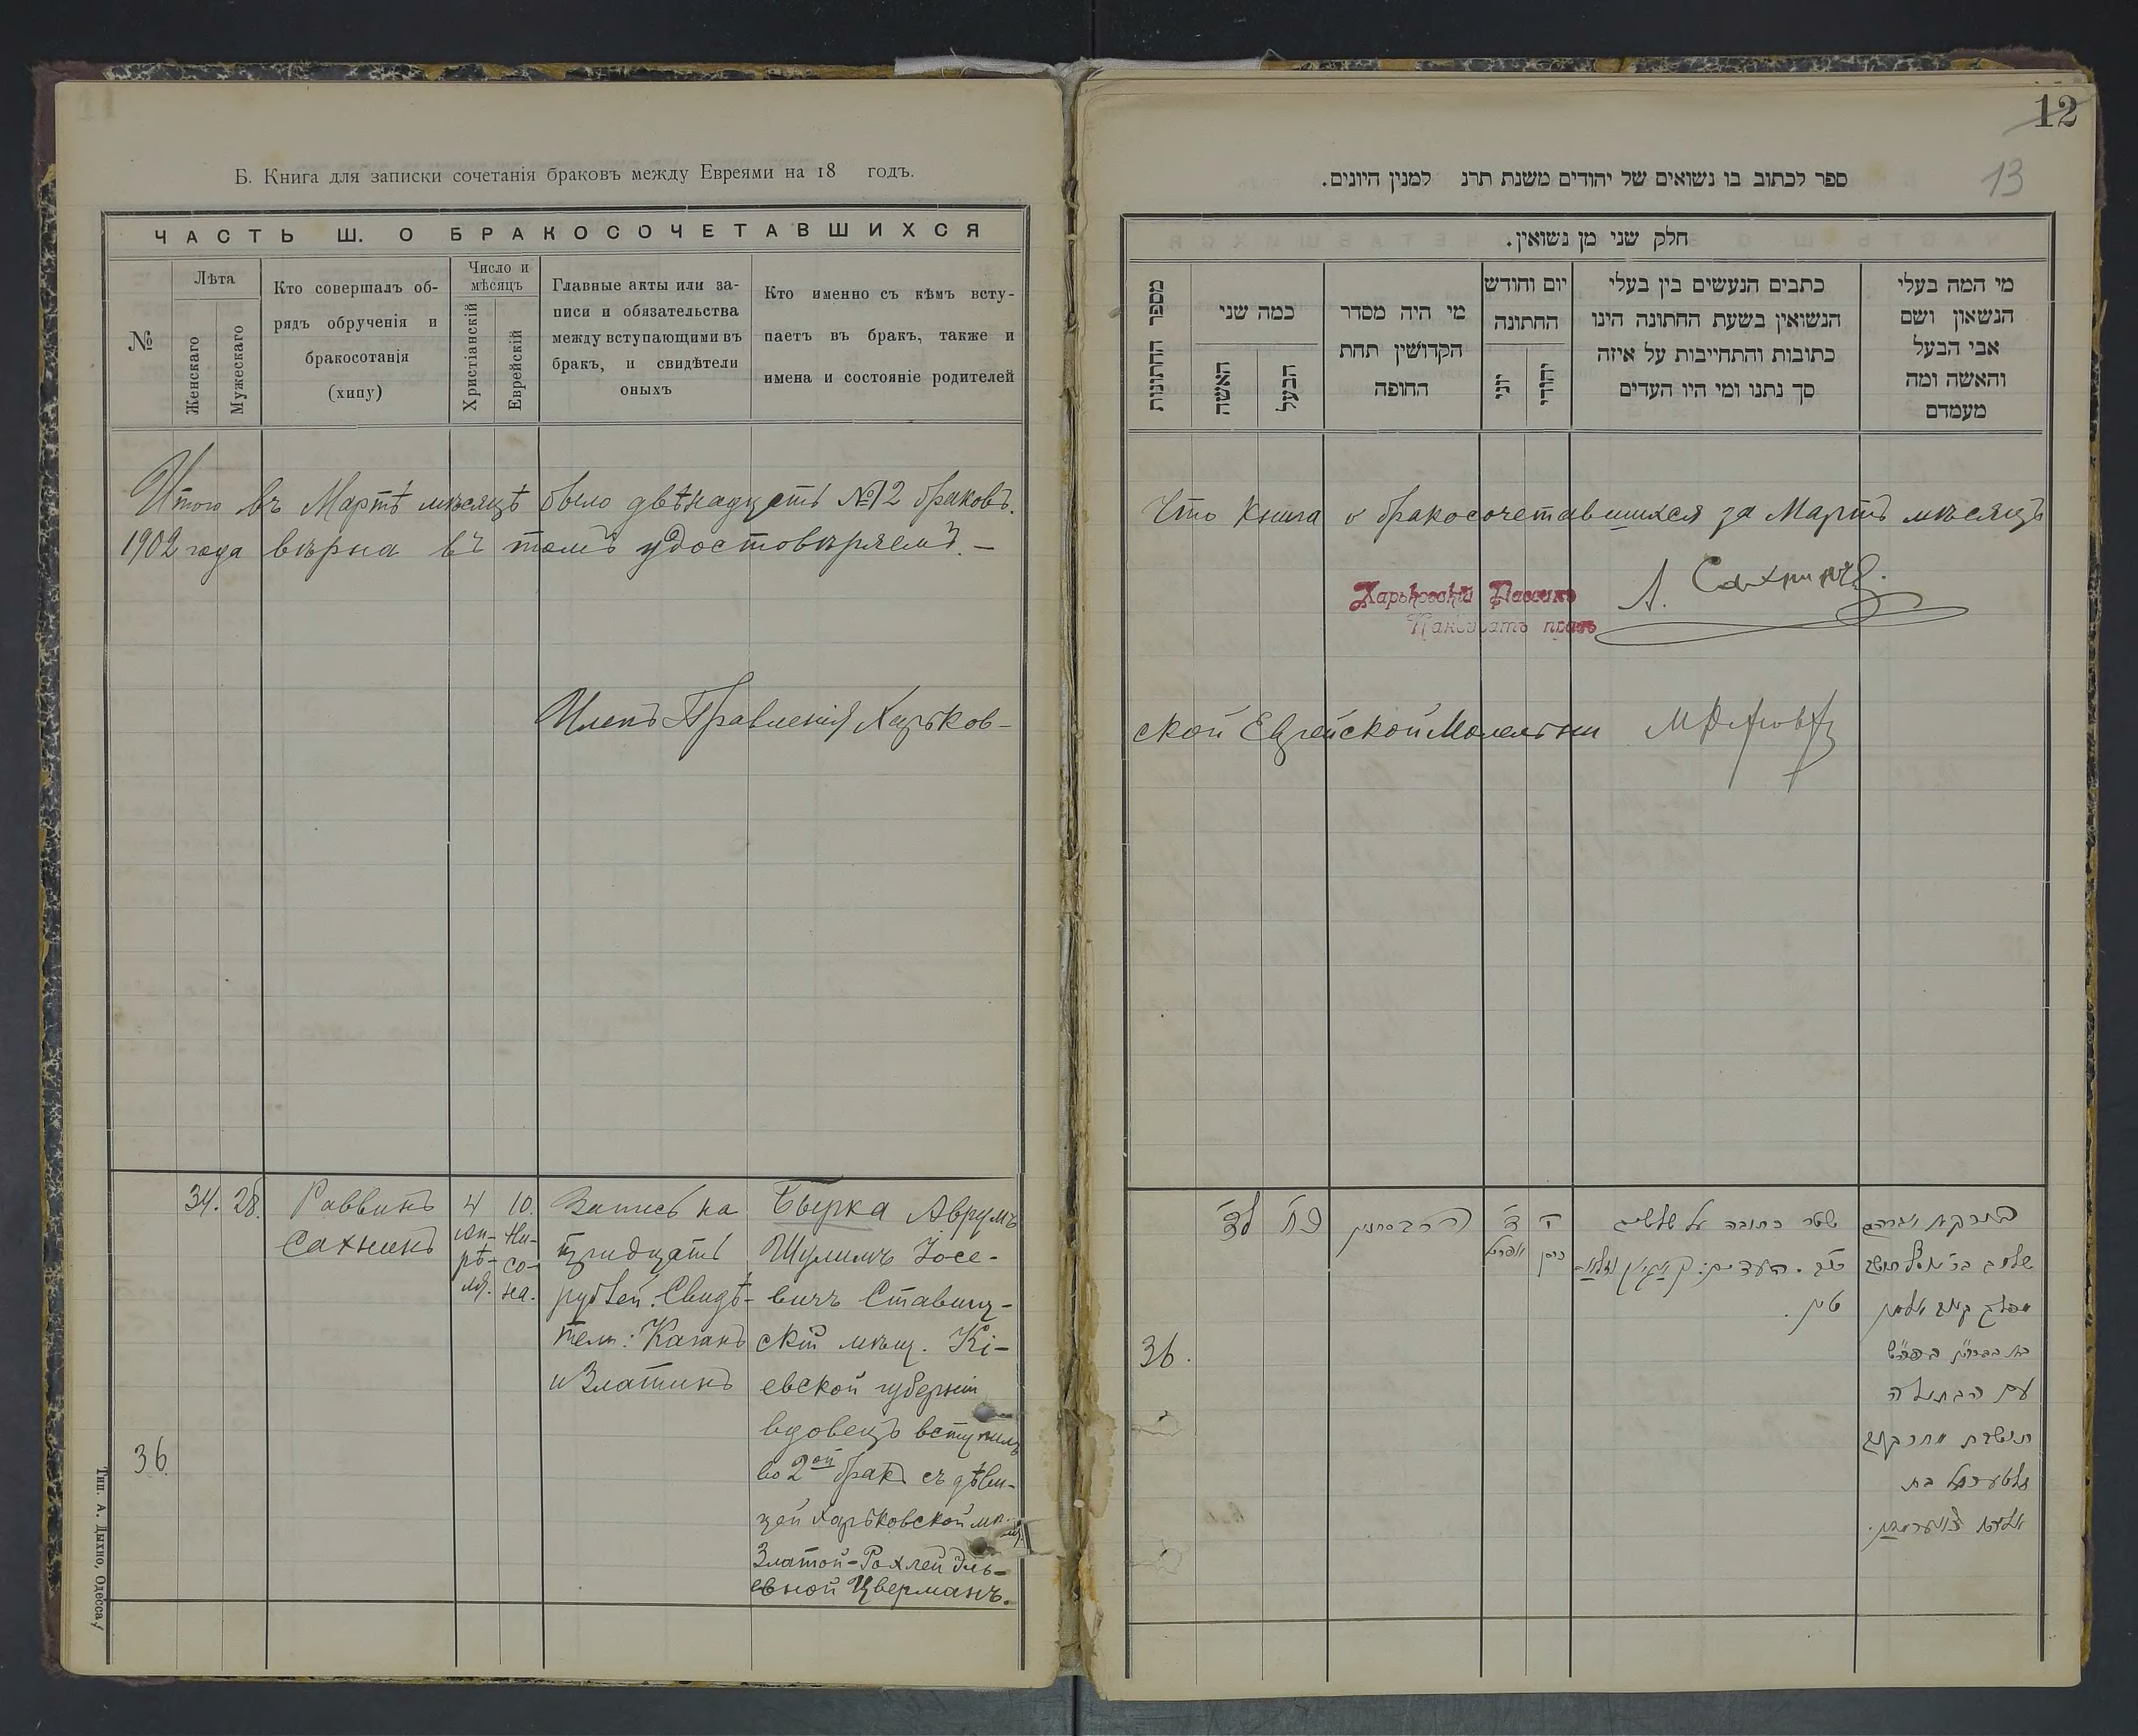 Б. Книга для записки сочетанія браковъ между Евреями на 18 годъ.
ЧАСТЬ Ш. О БРАКОСОЧЕТАВШИХСЯ
№
Лѣта
Женскаго
Мужескаго
Кто совершалъ об-
рядъ обрученія и
бракосотанія
(хипу)
Число и
мѣсяцъ
Христіанскій
Еврейскій
Главные акты или за-
писи и обязательства
между вступающими въ
бракъ, и свидѣтели
оныхъ
Кто именно съ кѣмъ всту-
паетъ въ бракъ, также и
имена и состояніе родителей
Итого въ Мартѣ мѣсяцѣ было двѣнадцать №12 браковъ.
1902 года вѣрна въ томъ удостовѣряемъ. —
Членъ Правленія Харьков-
36.
34.
28.
Раввинъ
Сахнинъ
4
ап-
рѣ-
ля.
10.
Ни-
со-
на.
Запись на
тридцать
рублей. Свидѣ-
тели: Каганъ
и Златинъ
Берка Аврумъ
Шулимъ Іосе-
вичъ Ставищ-
скій мѣщ. Кі-
евской губерніи
вдовецъ вступилъ
во 2ой бракъ съ дѣви-
цей Харьковской мѣ-
щ.
Златой-Рохлей Эль-
евной Цверманъ.
Тип. А. Дыхно, Одесса
12
13
ספר לכתוב בו נשואים של יהודים משנת תרנ למנין היונים.
חלק שני מן נשואין.
מספר החתונות
כמה שני
האשה
הבעל
מי היה מסדר
הקדושין תחת
החופה
יום וחודש
החתונה
יוני
יהודי
כתבים הנעשים בין בעלי
הנשואין בשעת החתונה הינו
כתובות והתחייבות על איזה
סך נתנו ומי היו העדים
מי המה בעלי
הנשאון ושם
אבי הבעל
והאשה ומה
מעמדם
Что книга о бракосочетавшихся за Мартъ мѣсяцъ
Харьковскій Раввинъ
Кандидатъ правъ
Л. Сахнинъ
ской Еврейской Молельни
36.
לד
כח
ד
אפריל
י
ניסן
שטר כתובה על שלשים
עם הבתולה